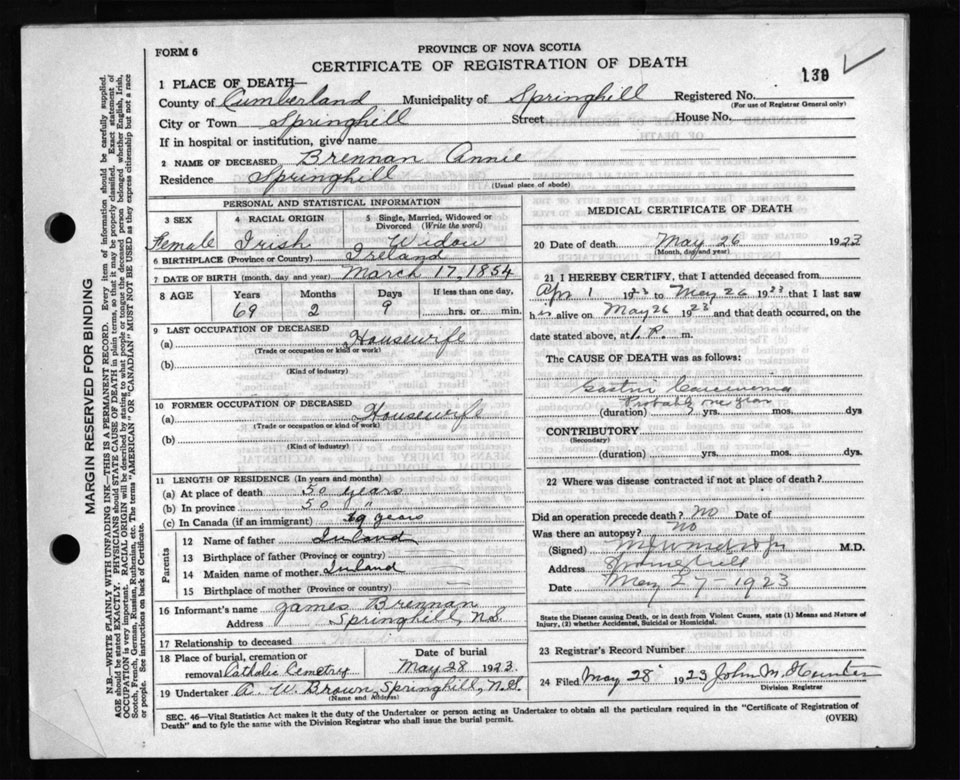 FORM 6
PROVINCE OF NOVA SCOTIA
CERTIFICATE OF REGISTRATION OF DEATH
139
1 PLACE OF DEATH—
County of Cumberland Municipality of Springhill Registered No.
(For use of Registrar General only)
City or Town Springhill Street House No.
If in hospital or institution, give name
2 NAME OF DECEASED Brennan Annie
Residence Springhill
(Usual place of abode)
PERSONAL AND STATISTICAL INFORMATION
3 SEX 4 RACIAL ORIGIN 5 Single, Married, Widowed or Divorced (Write the word)
Female Irish Widow
6 BIRTHPLACE (Province or Country) Ireland
7 DATE OF BIRTH (month, day and year) March 17, 1854
8 AGE Years Months Days If less than one day,
69 2 9 hrs. or min.
9 LAST OCCUPATION OF DECEASED
(a) Housewife
(Trade or occupation or kind or work)
(b)
(Kind of industry)
10 FORMER OCCUPATION OF DECEASED
(a) Housewife
(Trade or occupation or kind of work)
(b)
(Kind of industry)
11 LENGTH OF RESIDENCE (In years and months)
(a) At place of death 50 years
(b) In province 50 "
(c) In Canada (if an immigrant) years
Parents
12 Name of father Ireland
13 Birthplace of father (Province or country)
14 Maiden name of mother Ireland
15 Birthplace of mother (Province or country)
16 Informant's name James Brennan
Address Springhill, N.S.
17 Relationship to deceased
18 Place of burial, cremation or removal Catholic Cemetry Date of burial May 28 1923.
19 Undertaker A. W. Brown, Springhill, N.S.
(Name and Address)
MEDICAL CERTIFICATE OF DEATH
20 Date of death May 26 1923
(Month, day and year)
21 I HEREBY CERTIFY, that I attended deceased from
Apr 1 1923 to May 26 1923 that I last saw
h alive on May 26 1923 and that death occurred, on the
date stated above, at 1. P. m.
The CAUSE OF DEATH was as follows:
Gastric Carcinoma
Probably one year
(duration) yrs. mos. dys
CONTRIBUTORY
(Secondary)
(duration) yrs. mos. dys.
22 Where was disease contracted if not at place of death?
Did an operation precede death? No Date of
Was there an autopsy? No
(Signed) M.D.
Address Springhill
Date May 27-1923
State the Disease causing Death, or in death from Violent Causes, state (1) Means and Nature of
Injury, (2) whether Accidental, Suicidal or Homicidal.
23 Registrar's Record Number
24 Filed May 28 1923 John M. Hunter
Division Registrar
SEC. 46—Vital Statistics Act makes it the duty of the Undertaker or person acting as Undertaker to obtain all the particulars required in the "Certificate of Registration of
Death" and to fyle the same with the Division Registrar who shall issue the burial permit.
(OVER)
MARGIN RESERVED FOR BINDING
N.B.—WRITE PLAINLY WITH UNFADING INK—THIS IS A PERMANENT RECORD. Every item of information should be carefully supplied.
AGE should be stated EXACTLY. PHYSICIANS should STATE CAUSE OF DEATH in plain terms, so that it may be properly classified. Exact statement of
OCCUPATION is very important. RACIAL ORIGIN will be described by stating to what people or tongue the deceased person belonged whether English, Irish,
Scotch, French, German, Russian, Ruthenian, etc. The terms "AMERICAN" or "CANADIAN" MUST NOT BE USED as they express citizenship but not a race
or people. See instructions on back of Certificate.